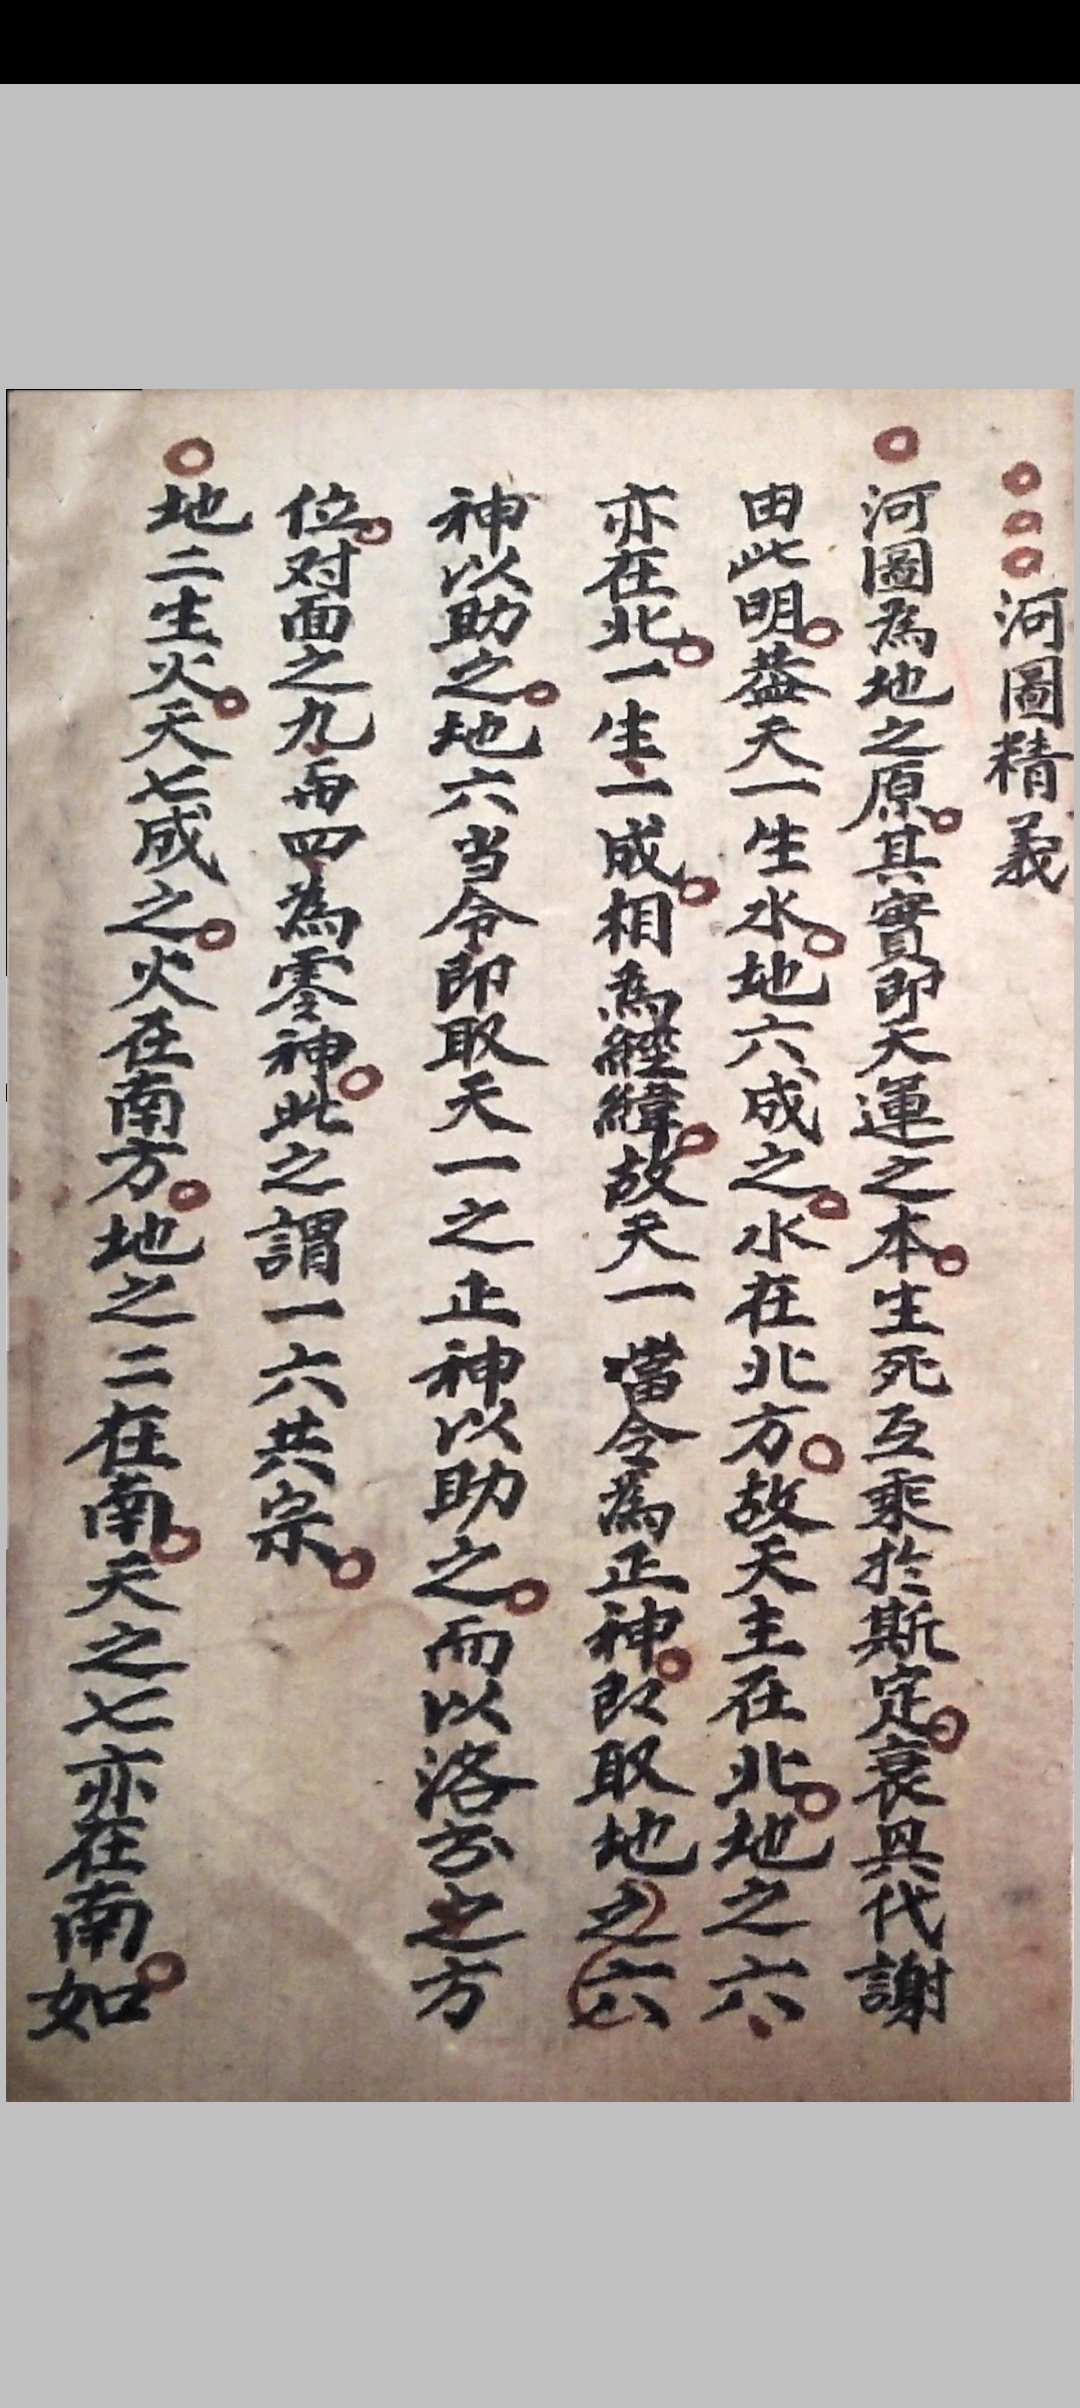 河圖精義
河圖為地之原其實即天運之本生死互乘於斯定衰與代謝
由此明蓋天一生水地六成之水在北方故天主在北地之六
亦在北一生一成相為經緯故天一當令為正神即取地之六
神以助之地六当令即取天一之正神以助之而以洛書之方
位对面之九而四為零神此之謂一六共宗
地二生火天七成之火在南方地之二在南天之七亦在南如